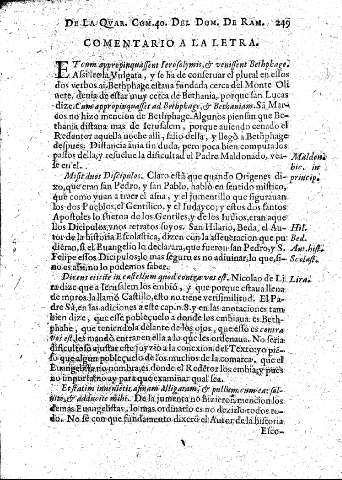 DE LA QVAR. COM. 40. DEL DOM. DE RAM. 249
COMENTARIO A LA LETRA.
ET cum appropinquassent Ierosolymis, & venissent Bethphage.
Assi lee la Vulgata, y se ha de conseruar el plural en essos
dos verbos assi. Bethphage estaua fundada cerca del Monte Oli
uete, deuia de estar muy cerca de Bethania, porque san Lucas
dize: Cum appropinquasset ad Bethphage, & Bethaniam. Sã Mar-
cos no hizo mencion de Bethphage. Algunos piensan que Be-
thania distaua mas de Ierusalem, porque auiendo cenado el
Redentor aquella noche alli, salio della, y llegò a Bethphage
despues: Distancia auia sin duda, pero poca bien computa los
passos della, y resuelue la dificultad el Padre Maldonado, vea-
se en el.
Maldon.
hic. in
princip.
Misit duos Discipulos. Claro està que quando Origenes di-
xo, que eran san Pedro, y san Pablo, hablò en sentido mistico,
que como yuan a traer el asna, y el jumentillo que figurauan
los dos Pueblos, el Gentilico, y el Iudayco; y estos dos Santos
Apostoles lo fueron de los Gentiles, y de los Iudios, eran aque
llos Dicipulos, vnos retratos suyos. San Hilario, Beda, el Au-
tor de la historia Escolastica, dizen con la assueracion que pu
dieron, si el Euangelio lo declarara, que fueron san Pedro, y S.
Felipe essos Dicipulos; lo mas seguro es no adiuinar, lo que, si-
no es assi, no lo podemos saber.
Hil.
Bed.
Aut. hist.
Scolast.
Dicens eis: ite in castellum quod contra vos est. Nicolao de Li
ra dize que a Ierusalem los embiò, y que porque estaua llena
de muros, la llamò Castillo, esto no tiene verisimilitud. El Pa-
dre Sà, en las adiciones a este cap. n. 8. y en las anotaciones tam
bien dize, que esse pobleçuelo a donde los embiaua es Beth-
phahe, que teniendola delante de los ojos, que esso es contra
vos est, les mandò entraren ella a lo que les ordenaua. No seria
dificultoso ajustar este juyzio a la conexion del Texto: yo pie-
so que algun pobleçuelo de los muchos de la comarca, que el
Euangelista no nombra, es donde el Redẽtor los embia, y pues
no importa, no ay para que examinar qual sea.
Lira.
Et statim inuenietis asinam alligatam, & pullum cum ea: sol-
uite, & adducite mihi. De la jumenta no hizieron mencion los
demas Euangelistas, lo mas ordinario es no dezirlo todos to-
do. No sè con que fundamento dixerõ el Autor de la historia
Esco-